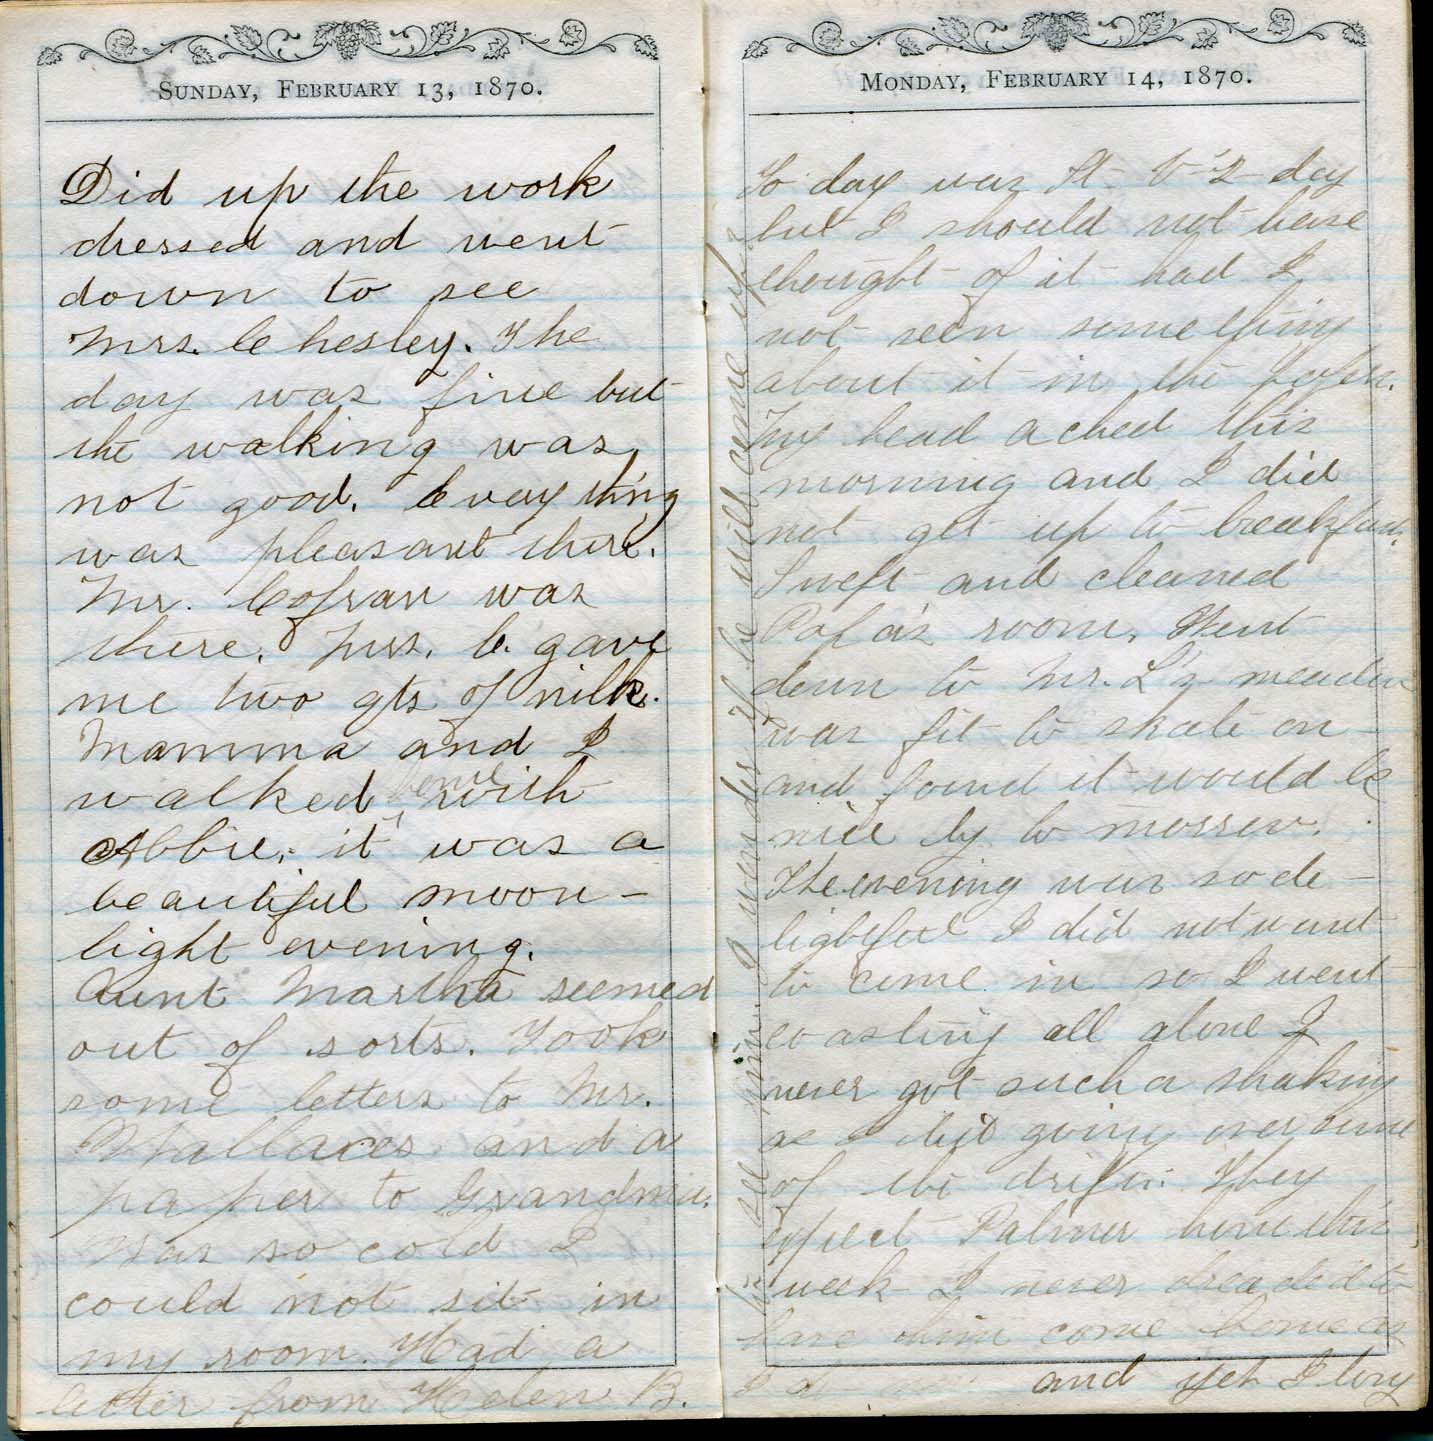 SUNDAY, FEBRUARY 13, 1870.
Did up the work
dressed and went
down to see
Mrs. Chesley. The
day was fine but
the walking was
not good. Every thing
was pleasant there.
Mr. Cofran was
there. Mrs. C. gave
me two qts of milk.
Mamma and I
walked home with
Abbie, it was a
beautiful moon-
light evening.
Aunt Martha seemed
out of sorts. Took
some letters to Mr.
Wallaces and a
paper to Grandma.
Was so cold I
could not sit in
my room. Had a
letter from Helen B.
MONDAY, FEBRUARY 14, 1870.
To day was St. V's day
but I should not have
thought of it had I
not seen something
about it in the paper.
My head ached this
morning and I did
not get up to breakfast.
Swept and cleaned
Papa's room. Went
down to Mr. L's meadow
was fit to skate on
and found it would be
nice by to morrow.
The evening was so de-
lightful I did not want
to come in so I went
coasting all alone I
never got such a shaking
as I did going over some
of the drifts. They
expect Palmer home this
week I never dreaded to
have him come home as
I do and yet I long
to see him. I wonder if he will come up?